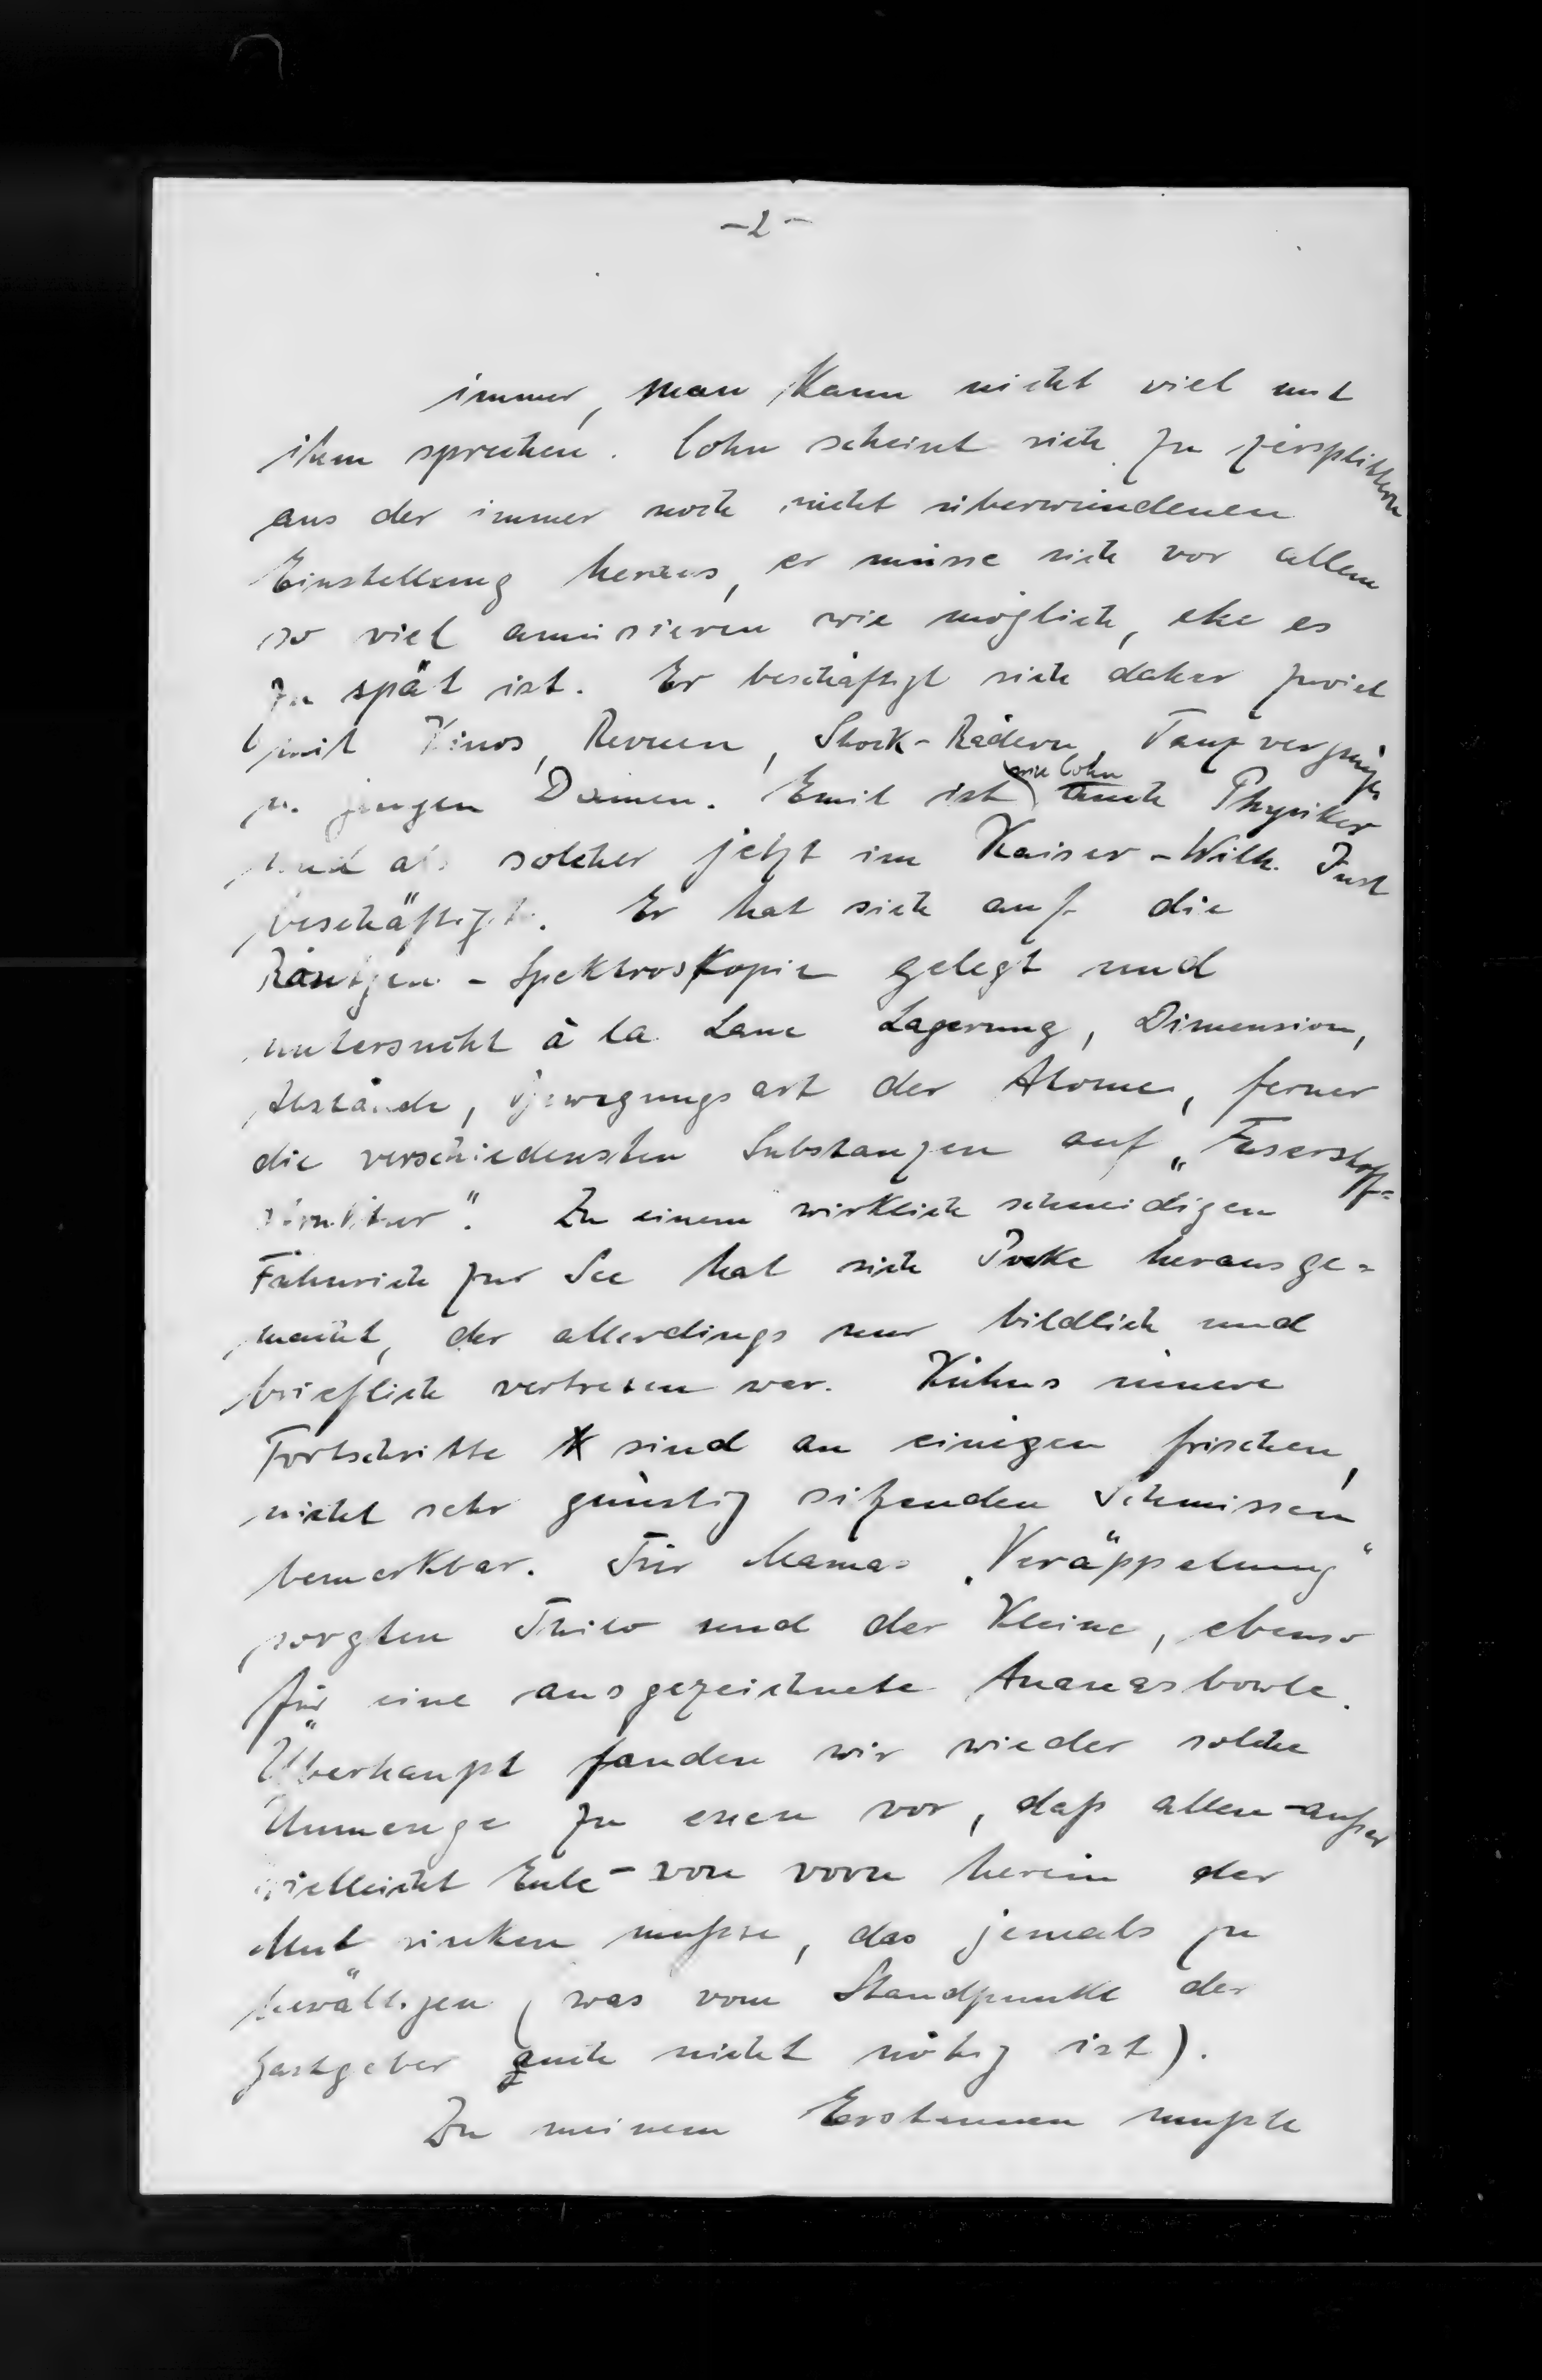 -2-
immer, man kann nicht viel mit
ihm sprechen. Cohn scheint sich zu zersplittern
aus der immer noch nicht überwundenen
Einstellung heraus, er müsse sich vor allem
so viel amüsieren wie möglich, ehe es
zu spät ist. Er beschäftigt sich daher zuviel
mit Kinos, Revuen, Stock-Rädern, Tanzvergnügen
u. jungen Damen. Emil ist wie Cohn auch Physiker
und als solcher jetzt im Kaiser-Wilh. Inst
beschäftigt. Er hat sich auf die
Röntgen-Spektroskopie gelegt und
untersucht à la Laue Lagerung, Dimension,
Abstände, Bewegungsart der Atome, ferner
die verschiedensten Substanzen auf „Faserstoff=
struktur". Zu einem wirklich schneidigen
Fähnrich zur See hat sich herausge=
macht, der allerdings nur bildlich und
brieflich vertreten war. Kühns innere
Fortschritte sind an einigen frischen,
nicht sehr günstig sitzenden Schmissen
bemerkbar. Für Mamas „Veräppelung"
sorgten Thilo und der Kleine, ebenso
für eine ausgezeichnete Ananasbowle.
Überhaupt fanden wir wieder solche
Unmenge zu essen vor, daß allen - außer
vielleicht Eule - von vorn herein der
Mut sinken musste, das jemals zu
bewältigen (was vom Standpunkt der
Gastgeber auch nicht nötig ist).
Zu meinem Erstaunen mußte